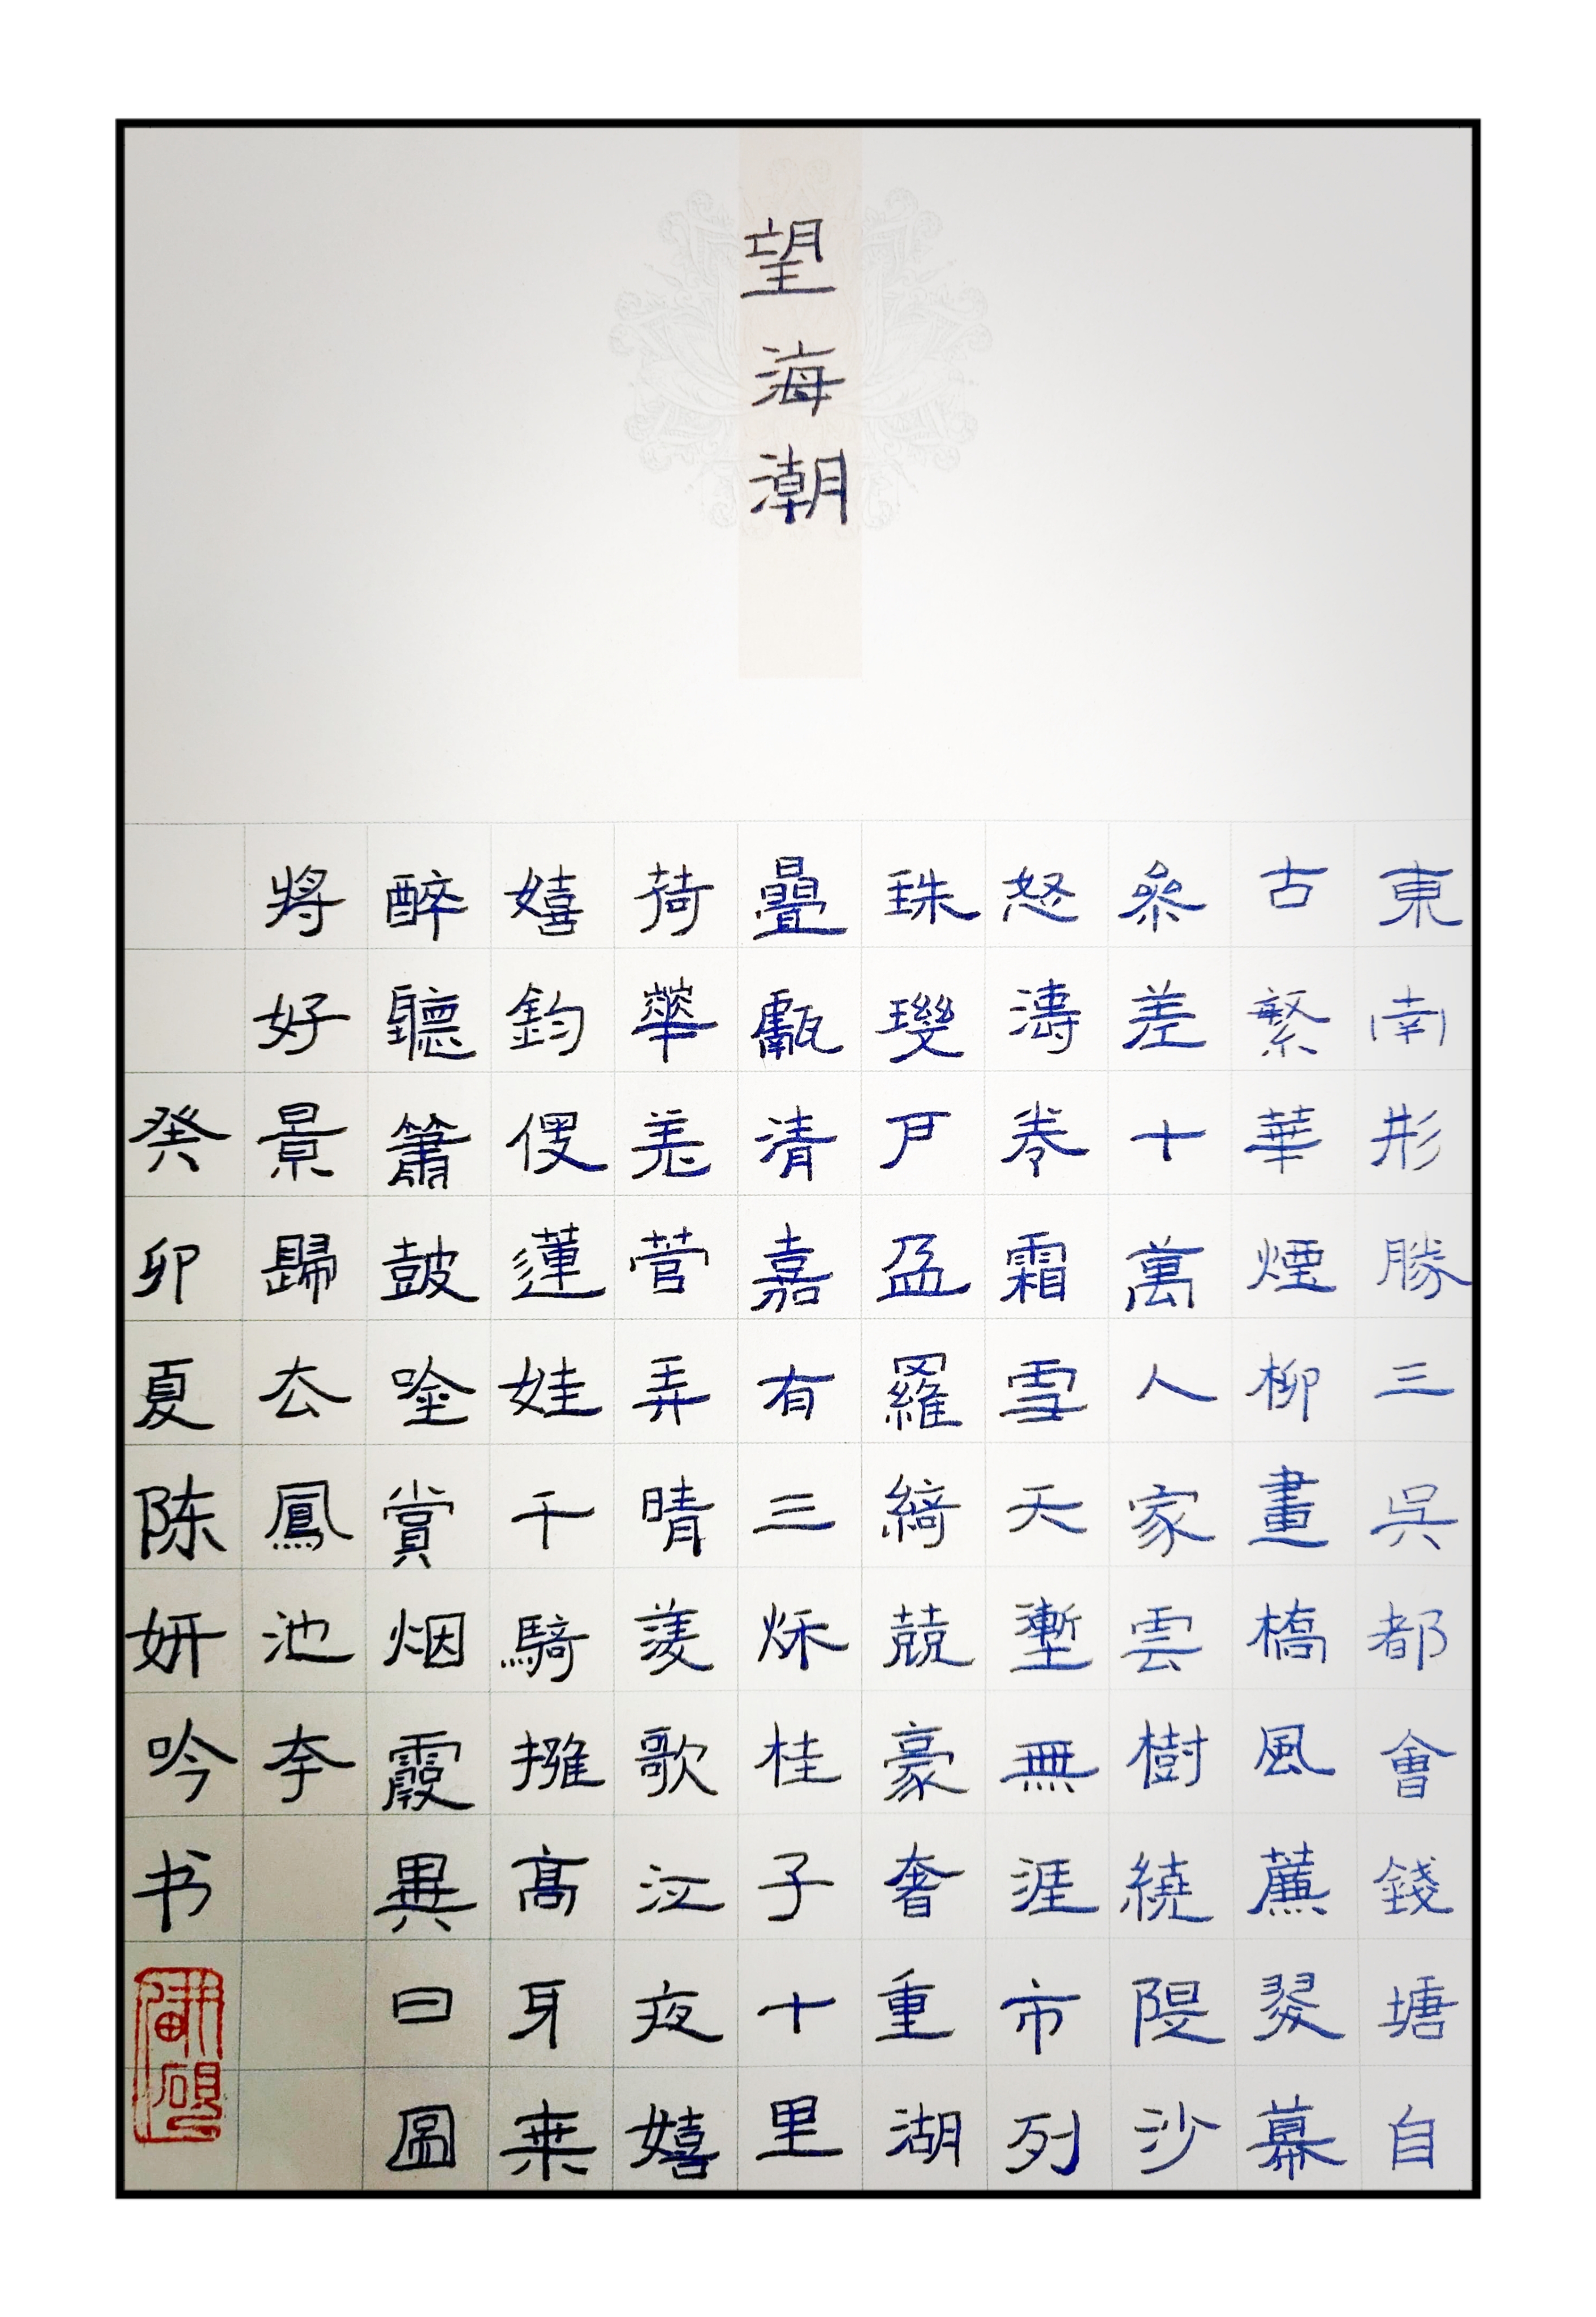 望海潮
東南形勝三吳都會錢塘自
古繁華煙柳畫橋風薕翠幕
參差十萬人家雲樹繞隄沙
怒濤卷霜雪天塹無涯市列
珠璣戶盈羅綺競豪奢重湖
疊巘清嘉有三秋桂子十里
荷華羌管弄晴菱歌泛夜嬉
嬉釣叟蓮娃千騎擁高牙乘
醉聽簫鼓唫賞烟霞異日圖
將好景歸去鳳池夸
癸卯夏陈妍吟书